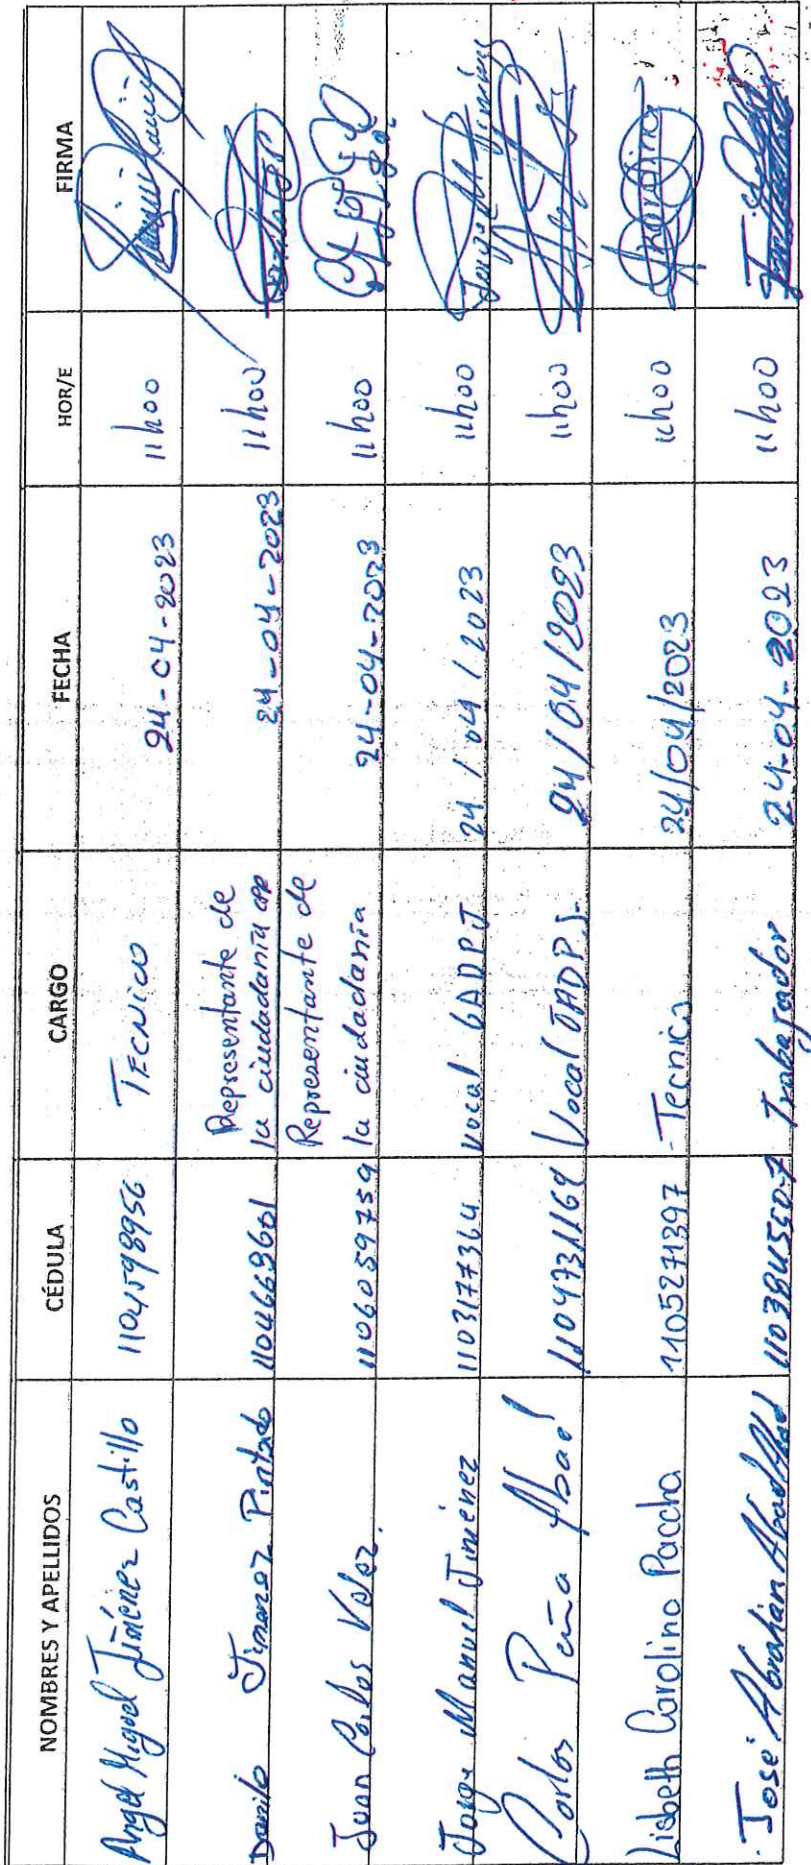 NOMBRES Y APELLIDOS CÉDULA CARGO FECHA HOR/E FIRMA
Angel Miguel Jiménez Castillo 1104598956 TECNICO 24-04-2023 11h00
Danilo Jimenez Pintado 1104669601 Representante de la ciudadanía 24-04-2023 11h00
Juan Carlos Velez. 1106059759 Representante de la ciudadanía 24-04-2023 11h00
Jorge Manuel Jiménez 1103177364 vocal GADPJ 24/04/2023 11h00 Jorge M Jiménez
Carlos Peña Abad 1104731169 Vocal GADPJ- 24/04/2023 11h00
Lisbeth Carolina Paccha 1105271397 -Tecnica 24/04/2023 11h00 Carolina
José Abrahan Abad Abad Trabajador 24-04-2023 11h00